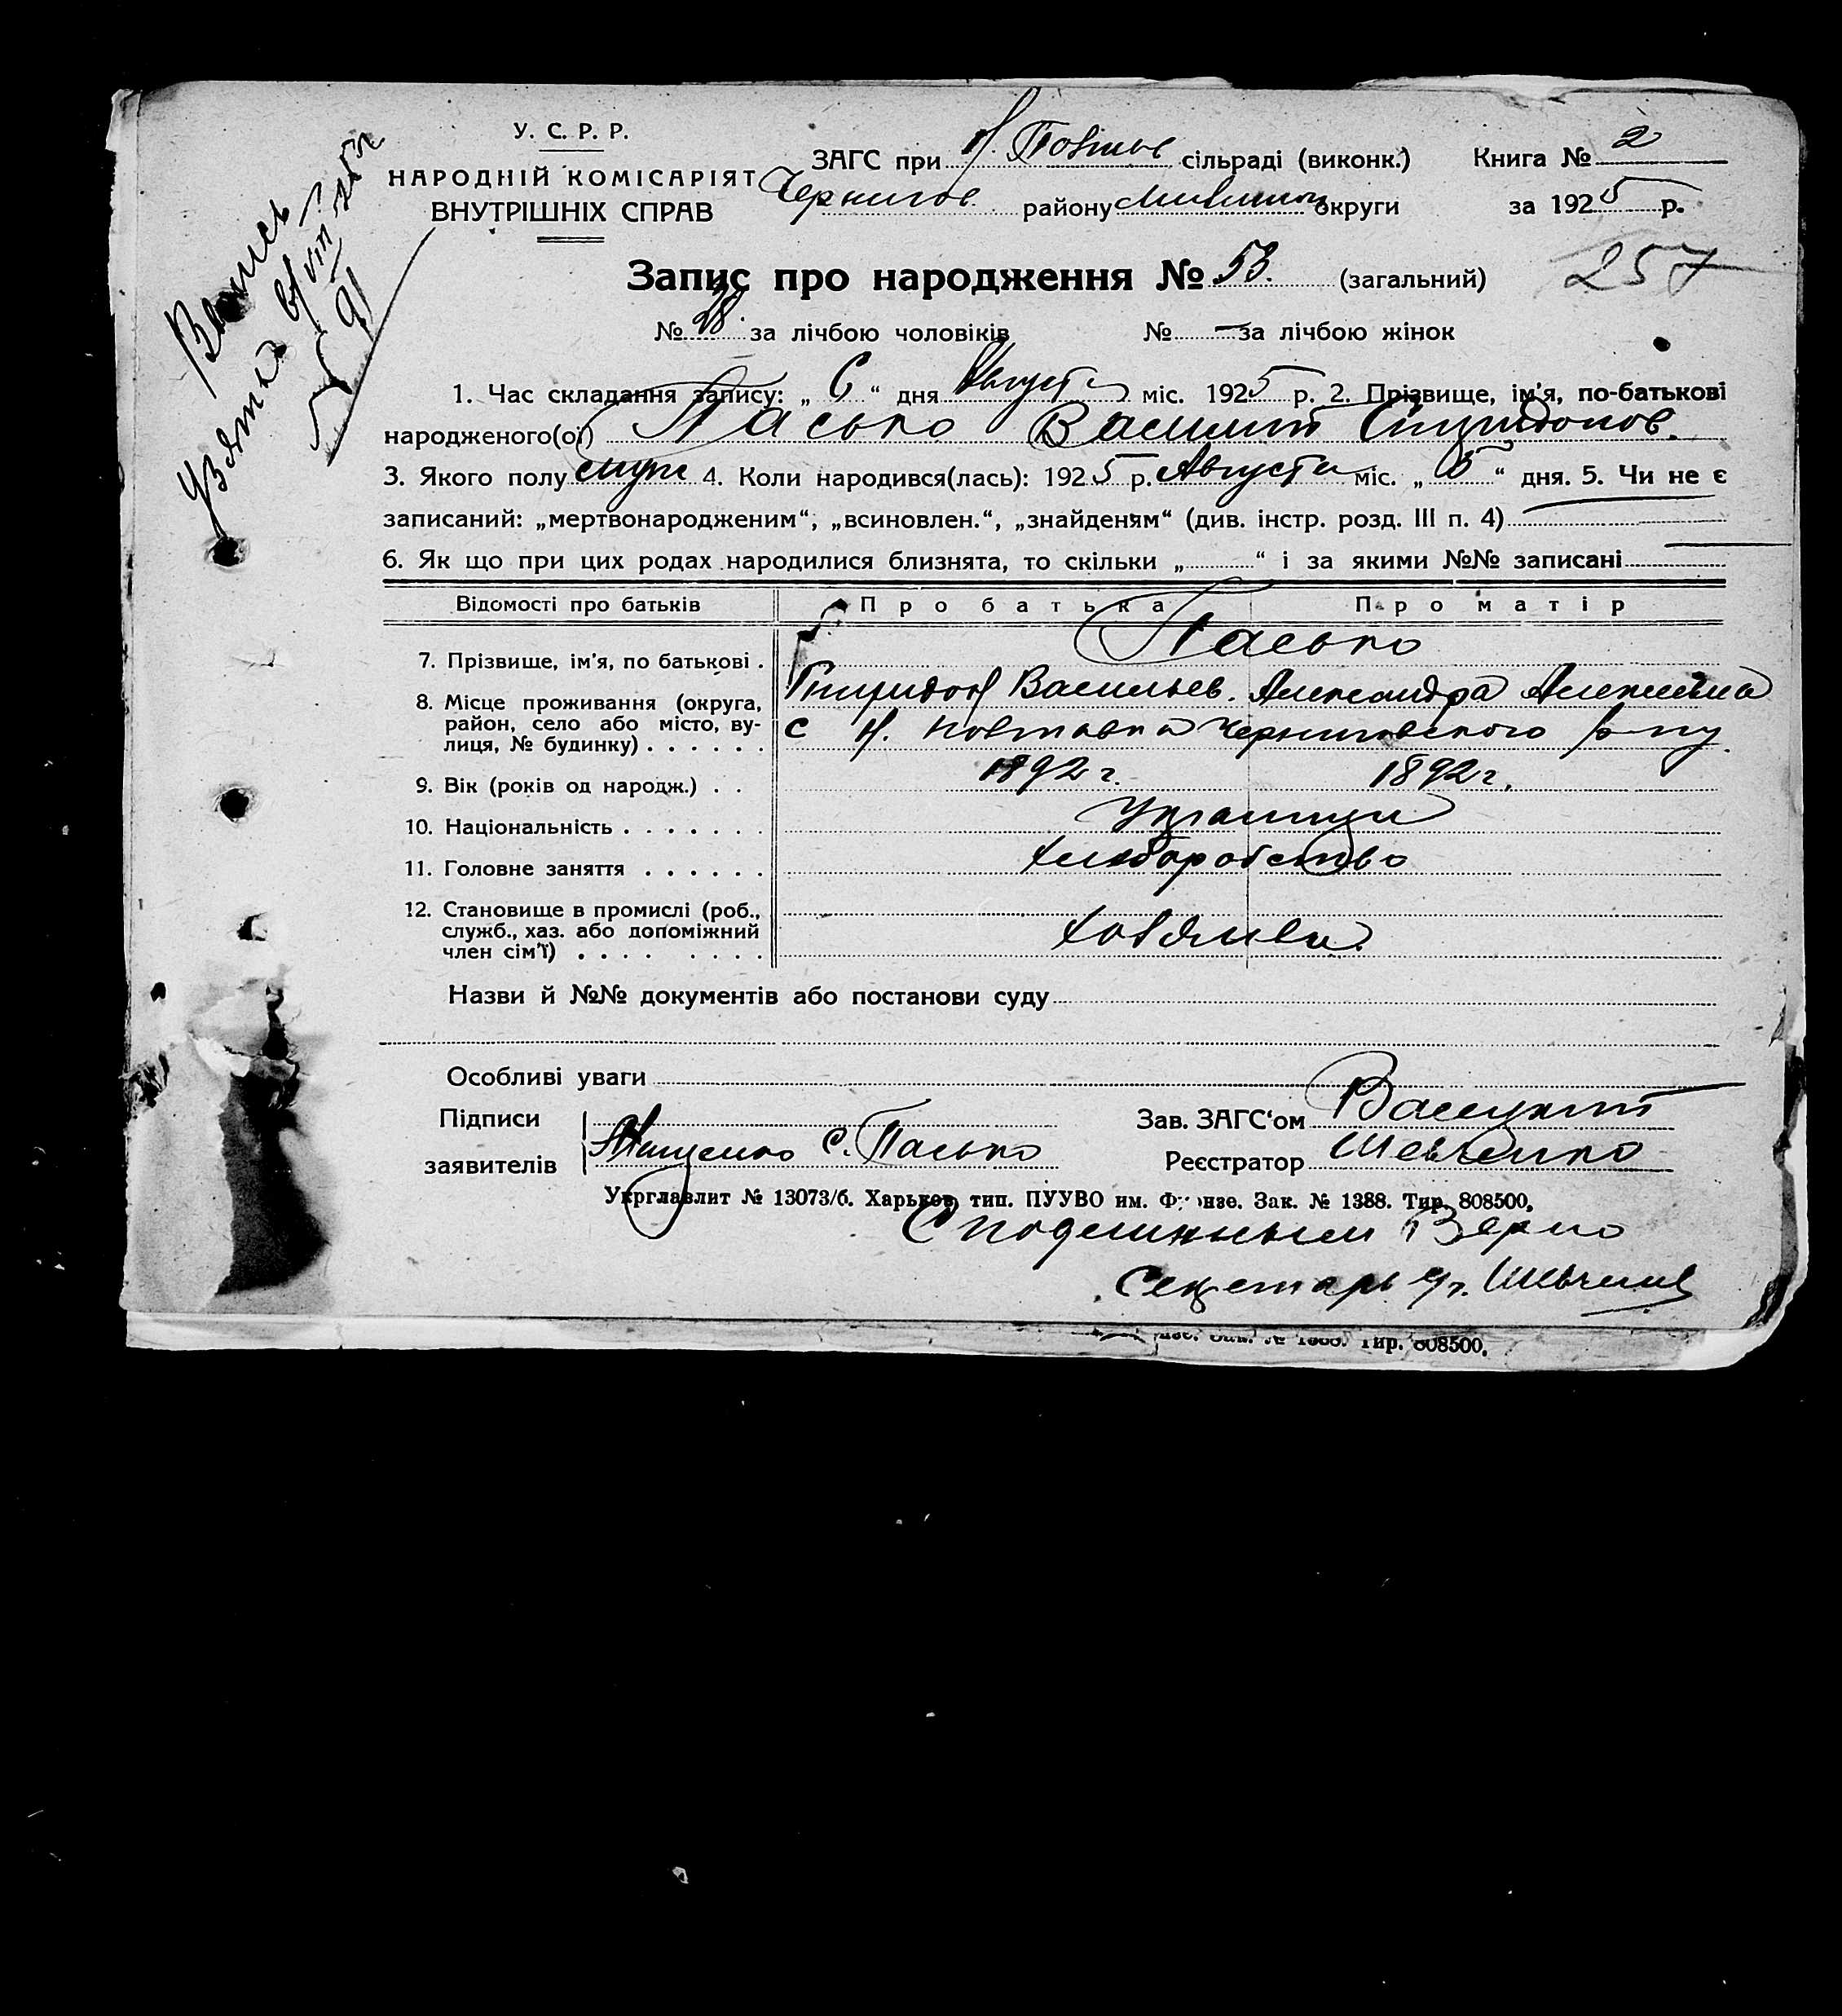 У. С. Р. Р.
НАРОДНІЙ КОМІСАРІЯТ
ВНУТРІШНІХ СПРАВ
ЗАГС при Н. Повтав сільраді (виконк.) Книга № 2
Чернигов району округи за 1925 р.
Запис про народження № 53. (загальний) 257
№ 28. за лічбою чоловіків № — за лічбою жінок
1. Час складання запису: „ 6 “ дня Августа міс. 1925 р. 2. Прізвище, ім'я, по-батькові
народженого(ої) Пасько Василий Спиридонов.
3. Якого полу муж 4. Коли народився(лась): 1925 р. Августа міс. „ 5 “ дня. 5. Чи не є
записаний: „мертвонародженим“, „всиновлен.“, „знайденям“ (див. інстр. розд. III п. 4)
6. Як що при цих родах народилися близнята, то скільки „ “ і за якими №№ записані
Відомості про батьків Про батька Про матір
7. Прізвище, ім'я, по батькові . Пасько
Спиридон Васильев. Александра Алексеевна
8. Місце проживання (округа,
район, село або місто, ву-
лиця, № будинку) . . . . . . с Н. Повтавка Черниговского р-ну
9. Вік (років од народж.) . . 1892 г. 1892 г.
10. Національність . . . . . . . Украинци
11. Головне заняття . . . . . . Хлеборобство
12. Становище в промислі (роб.,
служб., хаз. або допоміжний
член сім'ї) . . . . . . . . Хозяева
Назви й №№ документів або постанови суду
Особливі уваги
Підписи
заявителів С. Пасько
Зав. ЗАГС'ом
Реєстратор Шевченко
Укрглавлит № 13073/б. Харьков, тип. ПУУВО им. Фрунзе. Зак. № 1388. Тир. 808500.
С подлинным Верно
Секретарь с/р. Шевченко
Зак. № 1388. Тир. 808500.